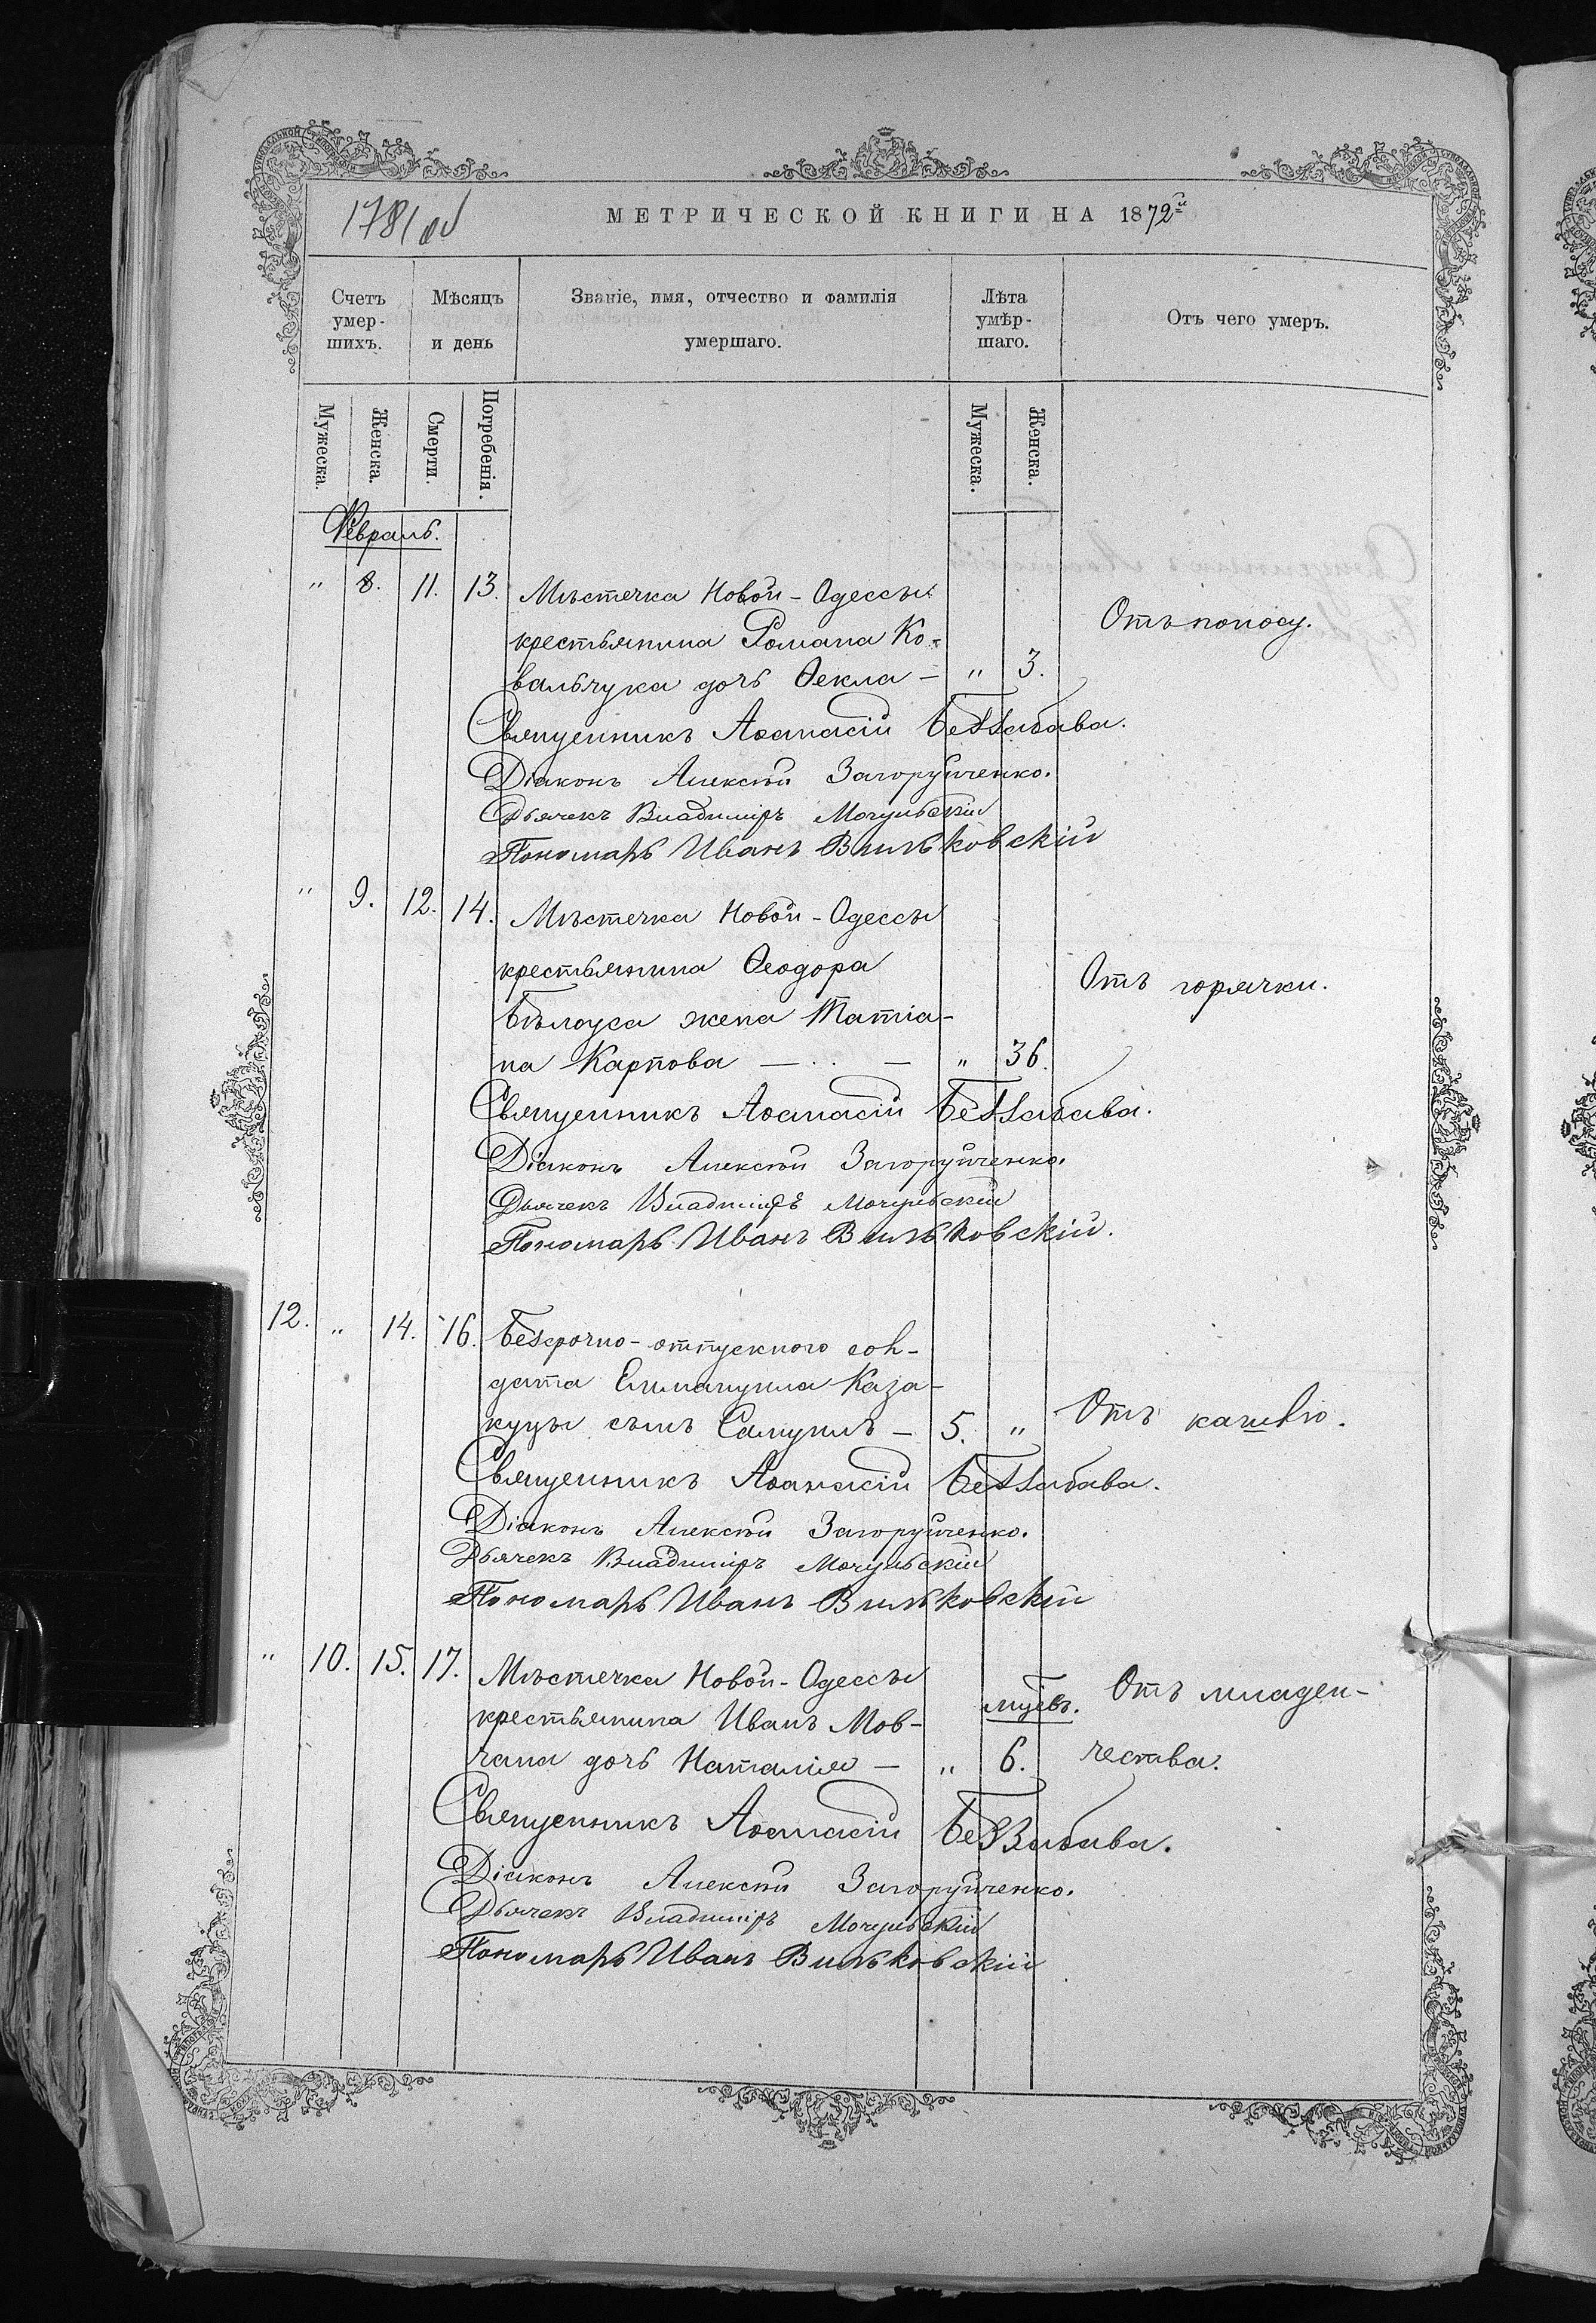 1781 об
МЕТРИЧЕСКОЙ КНИГИ НА 1872й
Счетъ умер- шихъ.
Мѣсяцъ и день
Званіе, имя, отчество и фамилія умершаго.
Лѣта умѣр- шаго.
Отъ чего умеръ.
Мужеска. Женска. Смерти. Погребенія. Мужеска. Женска.
Февраль.
" 8. 11. 13. Мѣстечка Новой-Одессы
крестьянина Романа Ко-
вальчука дочь Ѳекла — " 3. Отъ поносу.
Священникъ Аѳанасій Беззабава.
Діаконъ Алексѣй Загоруйченко.
Дьячекъ Владиміръ Мочульскій
Пономарь Иванъ Вильковскій
" 9. 12. 14. Мѣстечка Новой-Одессы
крестьянина Ѳеодора
Бѣлоуса жена Татіа-
на Карпова — — " 36. Отъ горячки.
Священникъ Аѳанасій Беззабава.
Діаконъ Алексѣй Загоруйченко.
Дьячекъ Владиміръ Мочульскій
Пономарь Иванъ Вильковскій.
12. " 14. 16. Безсрочно-отпускного сол-
дата Еммануила Каза-
куцы сынъ Самуилъ — 5. " Отъ кашлю.
Священникъ Аѳанасій Беззабава.
Діаконъ Алексѣй Загоруйченко.
Дьячекъ Владиміръ Мочульскій
Пономарь Иванъ Вильковскій
" 10. 15. 17. Мѣстечка Новой-Одессы
крестьянина Иванъ Мов- мцевъ. Отъ младен-
чана дочь Наталія — " 6. чества.
Священникъ Аѳанасій Беззабава.
Діаконъ Алексѣй Загоруйченко.
Дьячекъ Владиміръ Мочульскій
Пономарь Иванъ Вильковскій